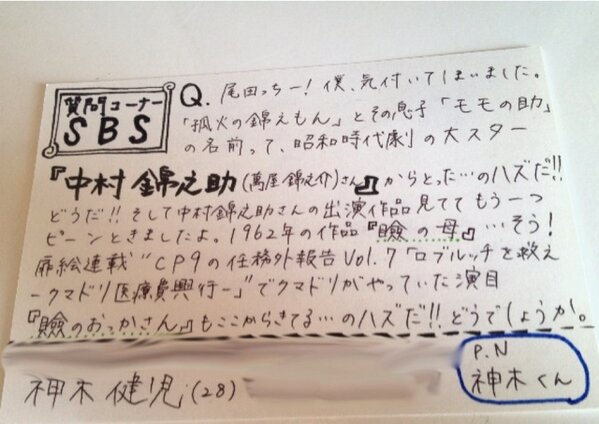 質問コーナー
SBS
Q. 尾田っちー!僕、気付いてしまいました。
「狐火の錦えもん」とその息子「モモの助」
の名前って、昭和時代劇の大スター
『中村 錦之助(萬屋 錦之介)さん』からとった…のハズだ!!
どうだ!!そして中村錦之助さんの出演作品見ててもう一つ
ピーンときましたよ。1962年の作品『瞼の母』…そう!
扉絵連載“CP9の任務外報告Vol.7「ロブルッチを救え
ークマドリ医療費興行ー」”でクマドリがやっていた演目
『瞼のおっかさん』もここからきてる…のハズだ!!どうでしょうか。
神木 健児(28)
P.N
神木くん